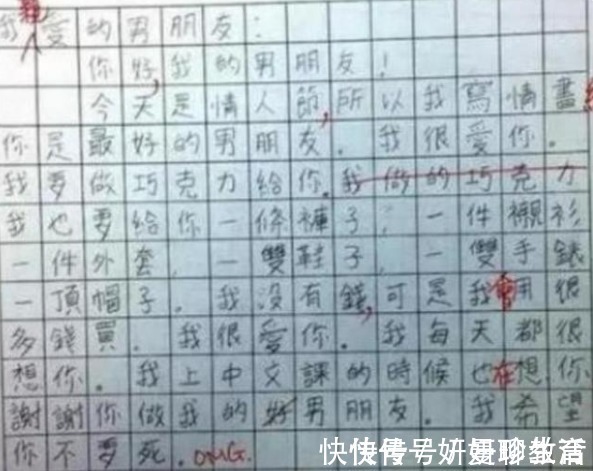 我親愛的男朋友:
你好,我的男朋友!
今天是情人節,所以我寫情書給
你是最好的男朋友.我很愛你.
我要做巧克力給你.我做的巧克力
我也要給你一條褲子,一件襯衫
一件外套,一雙鞋子,一雙手錶
一頂帽子.我沒有錢,可是我會用很
多錢買.我很愛你.我每天都很
想你.我上中文課的時候也在想你
謝謝你做我的好男朋友.我希望
你不要死.OMG.
快快传号妍妍聊教育